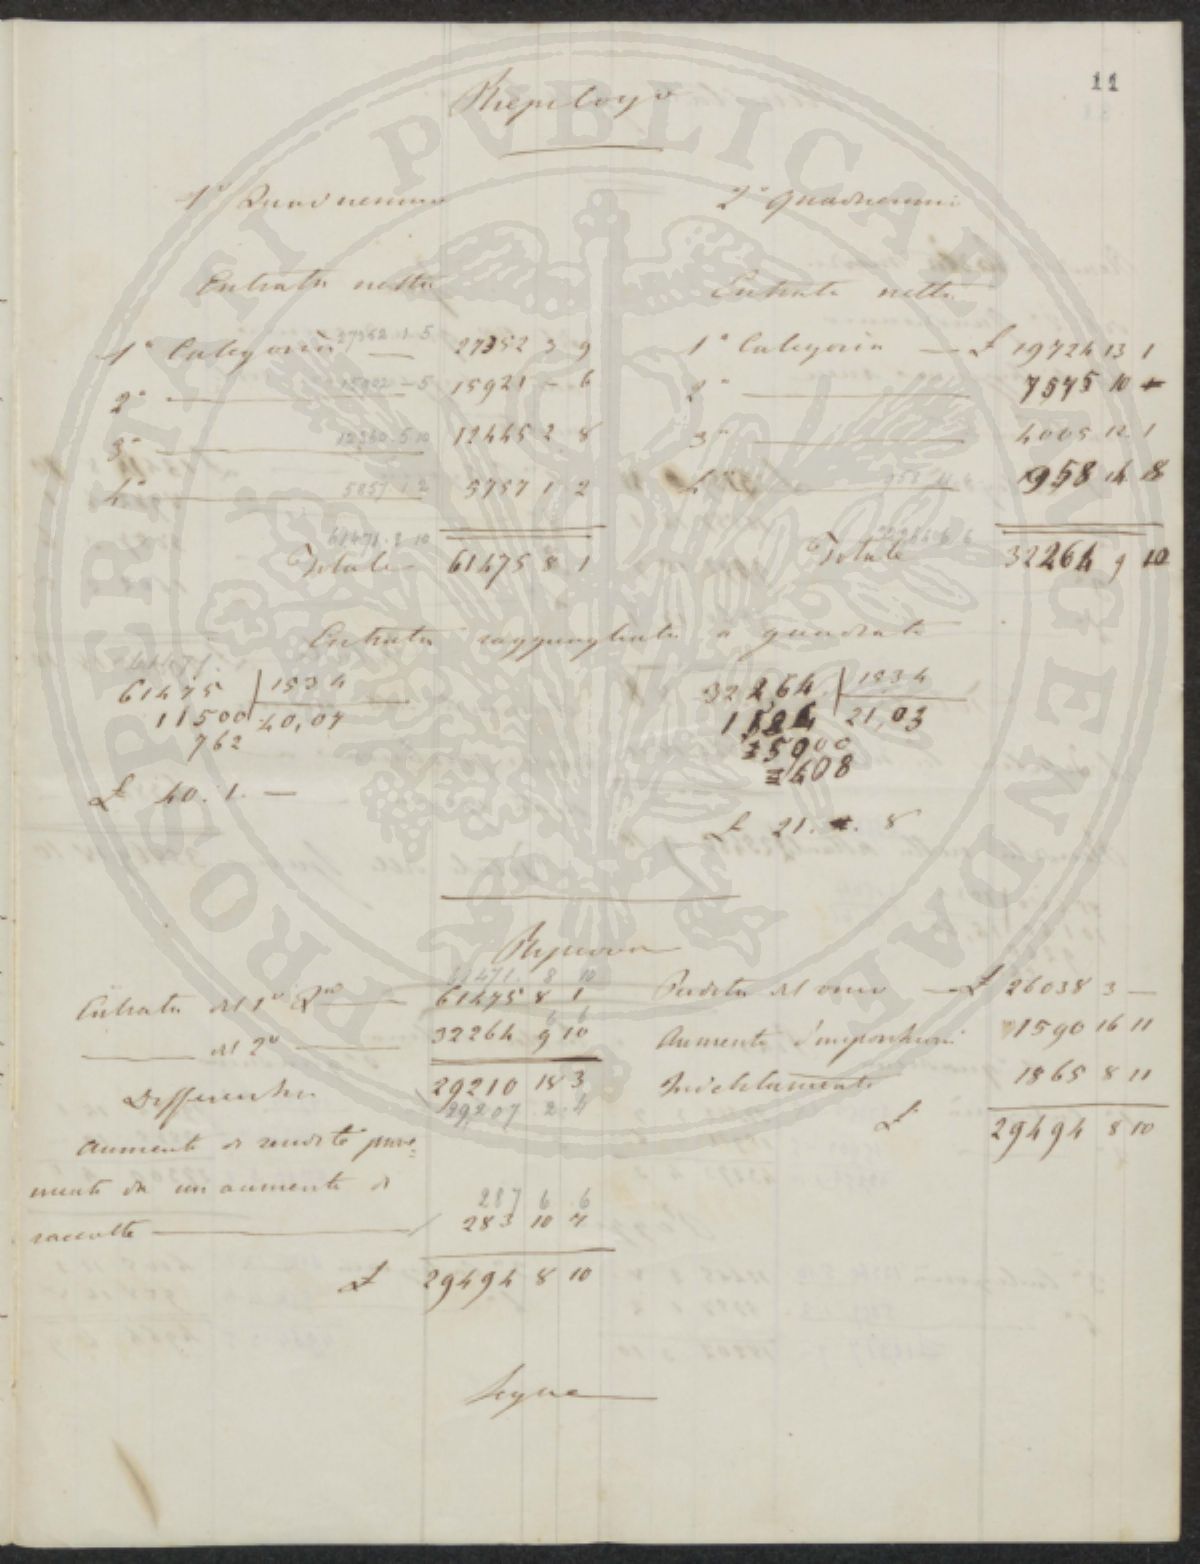 11
Riepilogo
1° Quadriennio
2° Quadriennio
Entrata netta
Entrata netta
27352 1 5
1a Categoria — 27352 3 9
1a Categoria — £ 19724 13 1
2a — 15902 - 5 15921 - 6
2a — 7575 10 -
3a — 12360 5 10 12445 2 8
3a — 4005 12 1
4a — 5857 1 2 5757 1 2
4a — 958 14 8
61471 8 10
Totale 61475 8 1
Totale 32264 9 10
Entrata ragguagliata a quadrato
61471
61475 | 1534
11500 40,07
762
£ 40. 1. —
32264 | 1534
1584 21,03
=5000
=408
£ 21. . 8
Riprova
61471. 8 10
Entrata del 1° Qnio — 61475 8 1
6 6
— del 2° — 32264 9 10
Differenza 29210 18 3
29207 2.4
Aumento di rendite prove=
niente da un aumento di
287 6 6
raccolte — 283 10 7
£ 29494 8 10
Perdita del vino — £ 26038 3 —
Aumento d'imposizioni 1590 16 11
Indebitamento 1865 8 11
£ 29494 8 10
Segue
PROSPERITATI PUBLICAE AUGENDAE